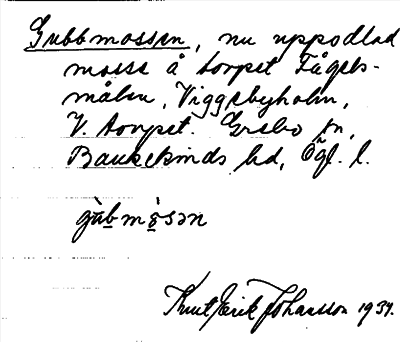 Gubbmossen, nu uppodlad
mosse å torpet Fågels-
målen, Viggebyholm,
V. torpet. Grebo sn,
Bankekinds hd, Ögl. l.
gùbmòsən
Knut Erik Johansson 1934.